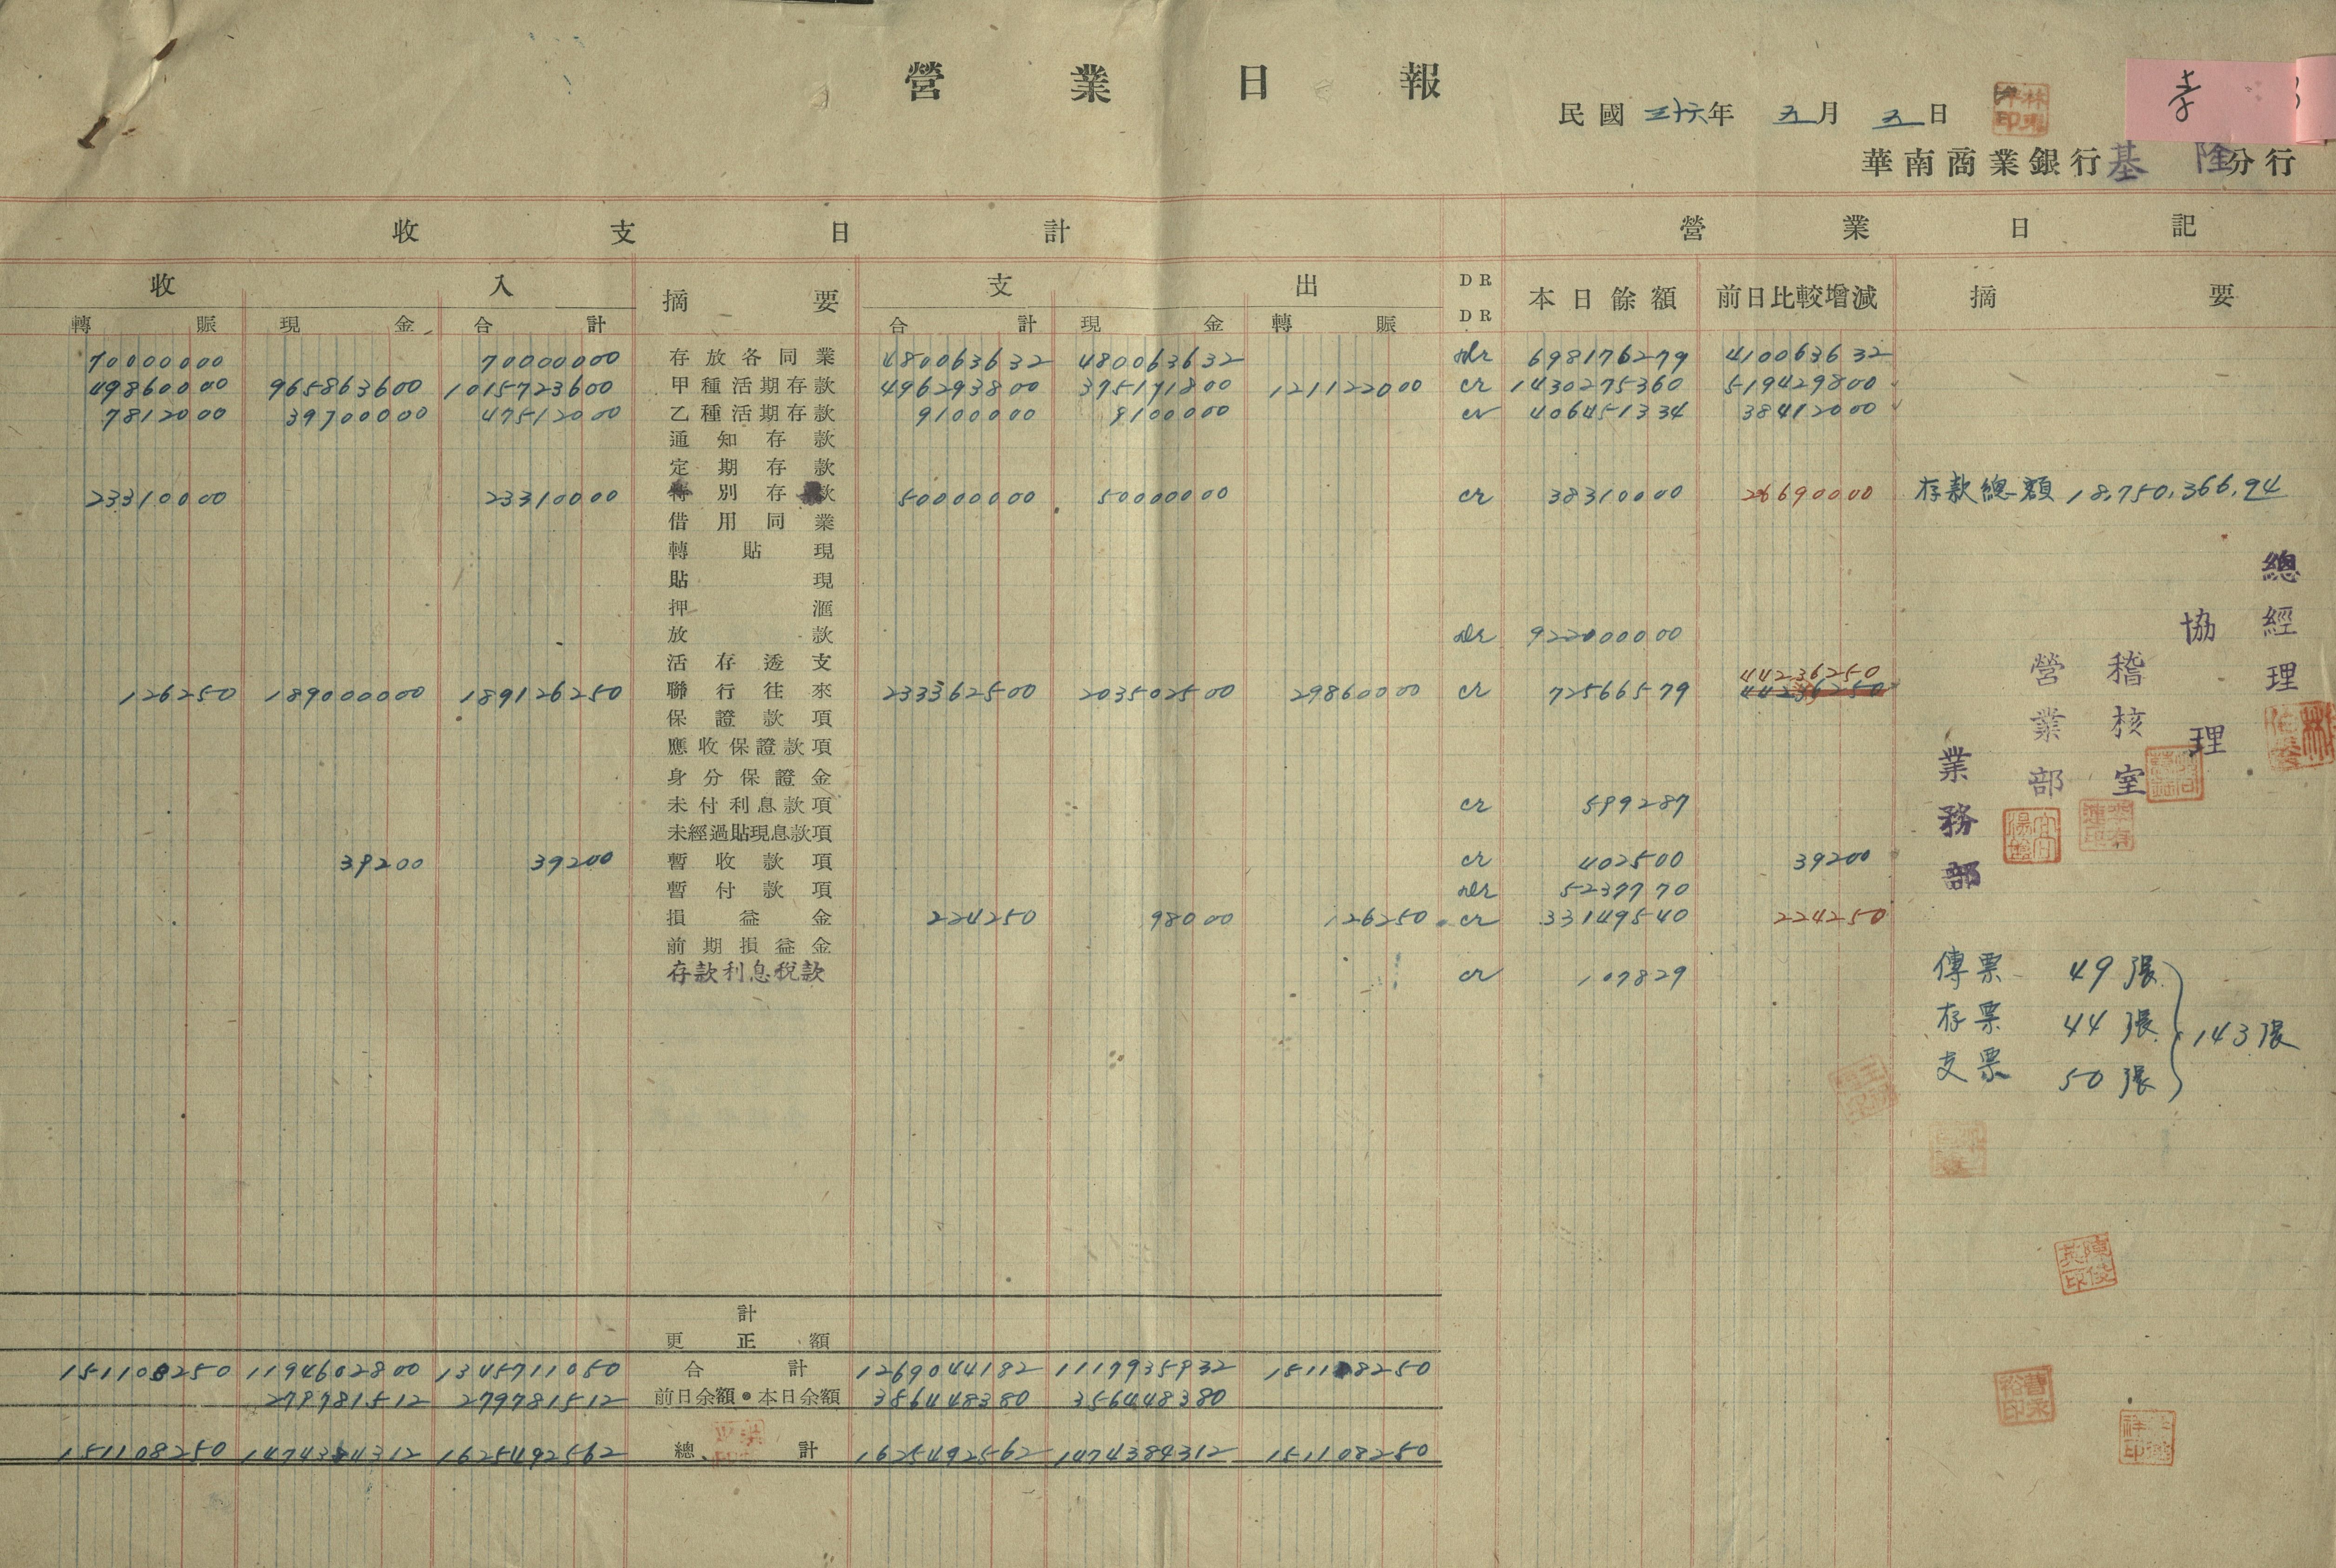 營業日報
孝
民國三十六年五月五日
華南商業銀行基隆分行
收支日計 營業日記
收入 摘要 支出 DR DR 本日餘額 前日比較增減 摘要
轉賬 現金 合計 合計 現金 轉賬
70000000 70000000 存放各同業 480063632 480063632 dr 698176279 410063632
49860000 965863600 1015723600 甲種活期存款 496293800 375171800 121122000 cr 1430275360 519429800
7812000 39700000 47512000 乙種活期存款 9100000 9100000 cr 406451334 38412000
通知存款
定期存款
23310000 23310000 特別存款 50000000 50000000 cr 38310000 26690000 存款總額 18,750,366.94
借用同業
轉貼現
貼現
押滙
放款 dr 922000000
活存透支
44236250
126250 189000000 189126250 聯行往來 233362500 203502500 29860000 cr 72566579 44236250
保證款項
應收保證款項
身分保證金
未付利息款項 cr 599287
未經過貼現息款項
39200 39200 暫收款項 cr 402500 39200
暫付款項 dr 5237770
損益金 224250 98000 126250 cr 33149540 224250
前期損益金
存款利息稅款 cr 107829
總經理
協理
稽核室
營業部
業務部
傳票 49張
存票 44張 143張
支票 50張
計
更正額
151108250 1194602800 1345711050 合計 1269044182 1117935932 151108250
279781512 279781512 前日余額・本日余額 356448380 356448380
151108250 1474384312 1625492562 總計 1625492562 1474384312 151108250